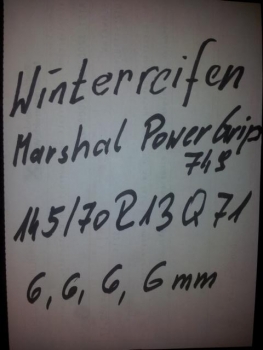 Winterreifen
Marshal PowerGrip
749
145/70 R13 Q 71
6, 6, 6, 6 mm